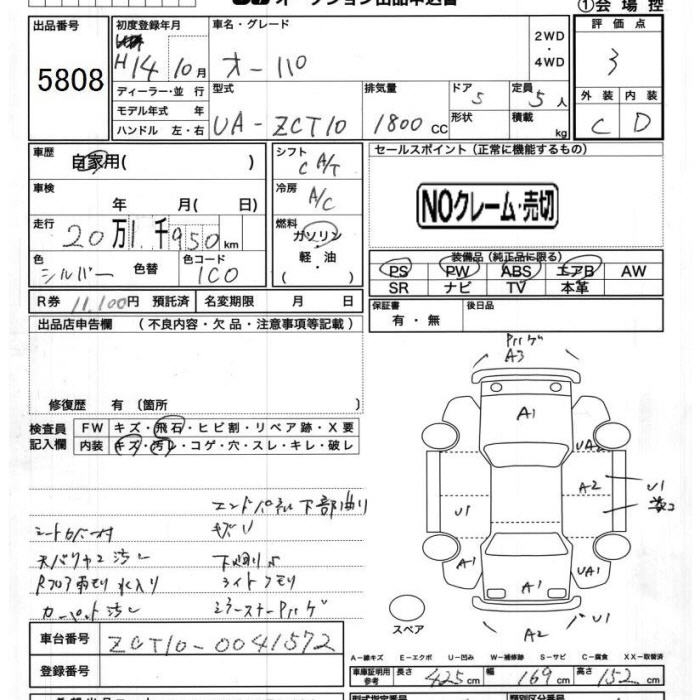 オークション出品申込書
①会場控
出品番号 5808
初度登録年月 H14 10月
車名・グレード オーパ
2WD・4WD
評価点 3
外装 C 内装 D
ディーラー・並行
モデル年式 年
ハンドル 左・右
型式 UA-ZCT10
排気量 1800CC
ドア 5
形状
定員 5人
積載 kg
車歴 自家用( )
車検 年 月( 日)
走行 20万1千950km
色 シルバー 色替 色コード 1C0
シフト C A/T
冷房 A/C
燃料 ガソリン・軽・油 ( )
セールスポイント(正常に機能するもの)
NOクレーム・売切
装備品(純正品に限る)
PS PW ABS エアB AW
SR ナビ TV 本革
R券 11,100円 預託済 名変期限 月 日
保証書 有・無 後日品
出品店申告欄 (不良内容・欠品・注意事項等記載)
修復歴 有 〔箇所 〕
検査員記入欄
FW キズ・飛石・ヒビ割・リペア跡・X要
内装 キズ・汚レ・コゲ・穴・スレ・キレ・破レ
エンドパネル下部曲り
キズU
天バリヤニ汚レ 下廻りS
Rフロア雨モリ水入り ライトクモリ
カーペット汚レ ミラーステーPハゲ
Pハゲ
A3
A1
UA2
A2 U1
U1
A1
A1
UA1
U1
A2
スペア
車台番号 ZCT10-0041572
登録番号
A-線キズ E-エクボ U-凹み W-補修跡 S-サビ C-腐食 XX-取替済
車庫証明用参考 長さ 425cm 幅 169cm 高さ 152cm
型式指定番号 類別区分番号